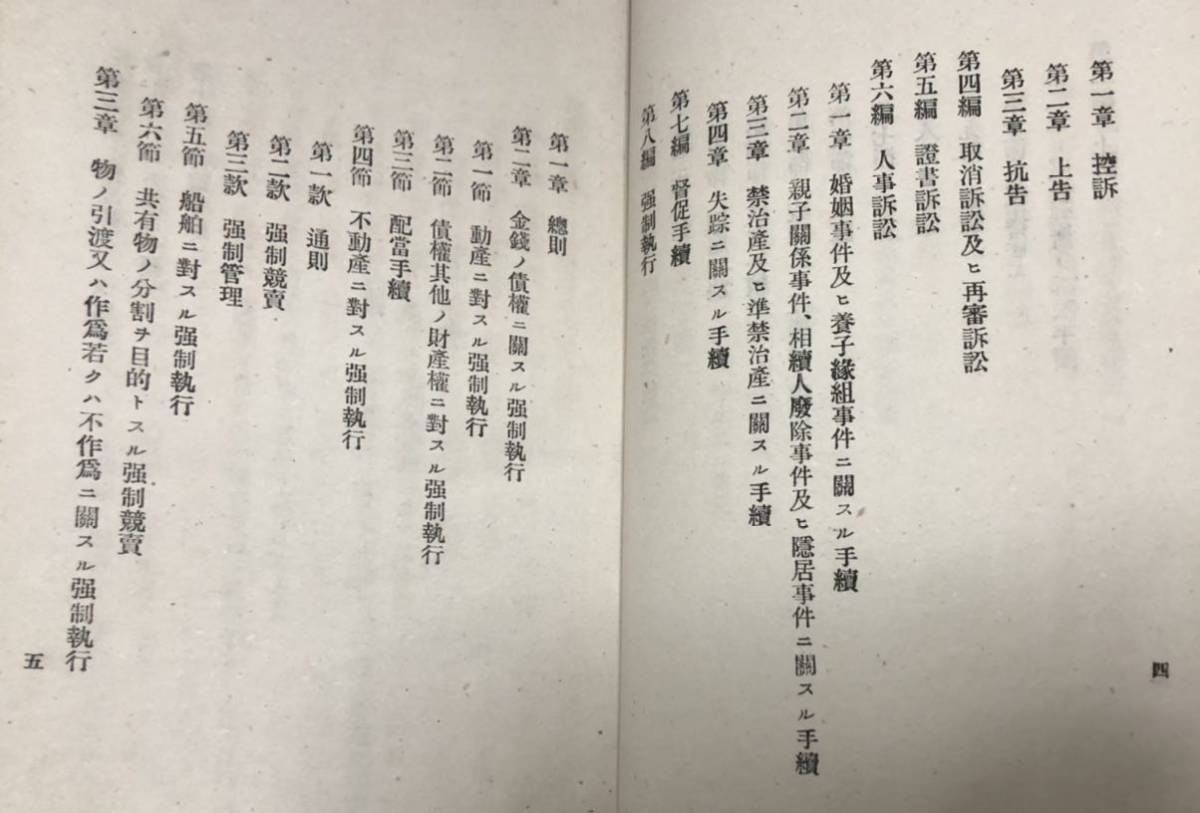 第一章　控訴
第二章　上告
第三章　抗告
第四編　取消訴訟及ヒ再審訴訟
第五編　證書訴訟
第六編　人事訴訟
第一章　婚姻事件及ヒ養子緣組事件ニ關スル手續
第二章　親子關係事件、相續人廢除事件及ヒ隱居事件ニ關スル手續
第三章　禁治產及ヒ準禁治產ニ關スル手續
第四章　失踪ニ關スル手續
第七編　督促手續
第八編　强制執行
四
第一章　總則
第二章　金錢ノ債權ニ關スル强制執行
第一節　動產ニ對スル强制執行
第二節　債權其他ノ財產權ニ對スル强制執行
第三節　配當手續
第四節　不動產ニ對スル强制執行
第一款　通則
第二款　强制競賣
第三款　强制管理
第五節　船舶ニ對スル强制執行
第六節　共有物ノ分割ヲ目的トスル强制競賣
第三章　物ノ引渡又ハ作爲若クハ不作爲ニ關スル强制執行
五